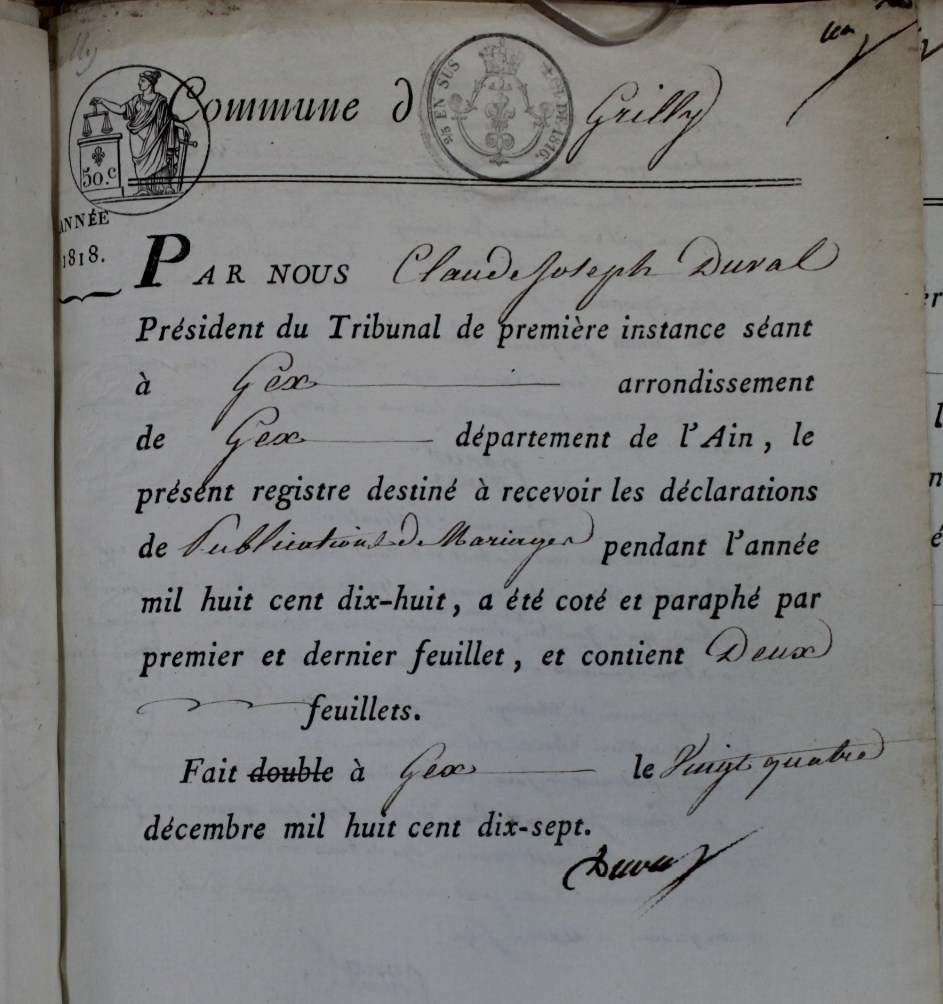 Commune d Grilly
2/5 EN SUS
LOI DE 1816.
50.c
ANNÉE
1818.
PAR NOUS Claude Joseph Duval
Président du Tribunal de première instance séant
à Gex arrondissement
de Gex département de l'Ain, le
présent registre destiné à recevoir les déclarations
de Publications de Mariages pendant l'année
mil huit cent dix-huit, a été coté et paraphé par
premier et dernier feuillet, et contient Deux
feuillets.
Fait double à Gex le Vingt quatre
décembre mil huit cent dix-sept.
Duval